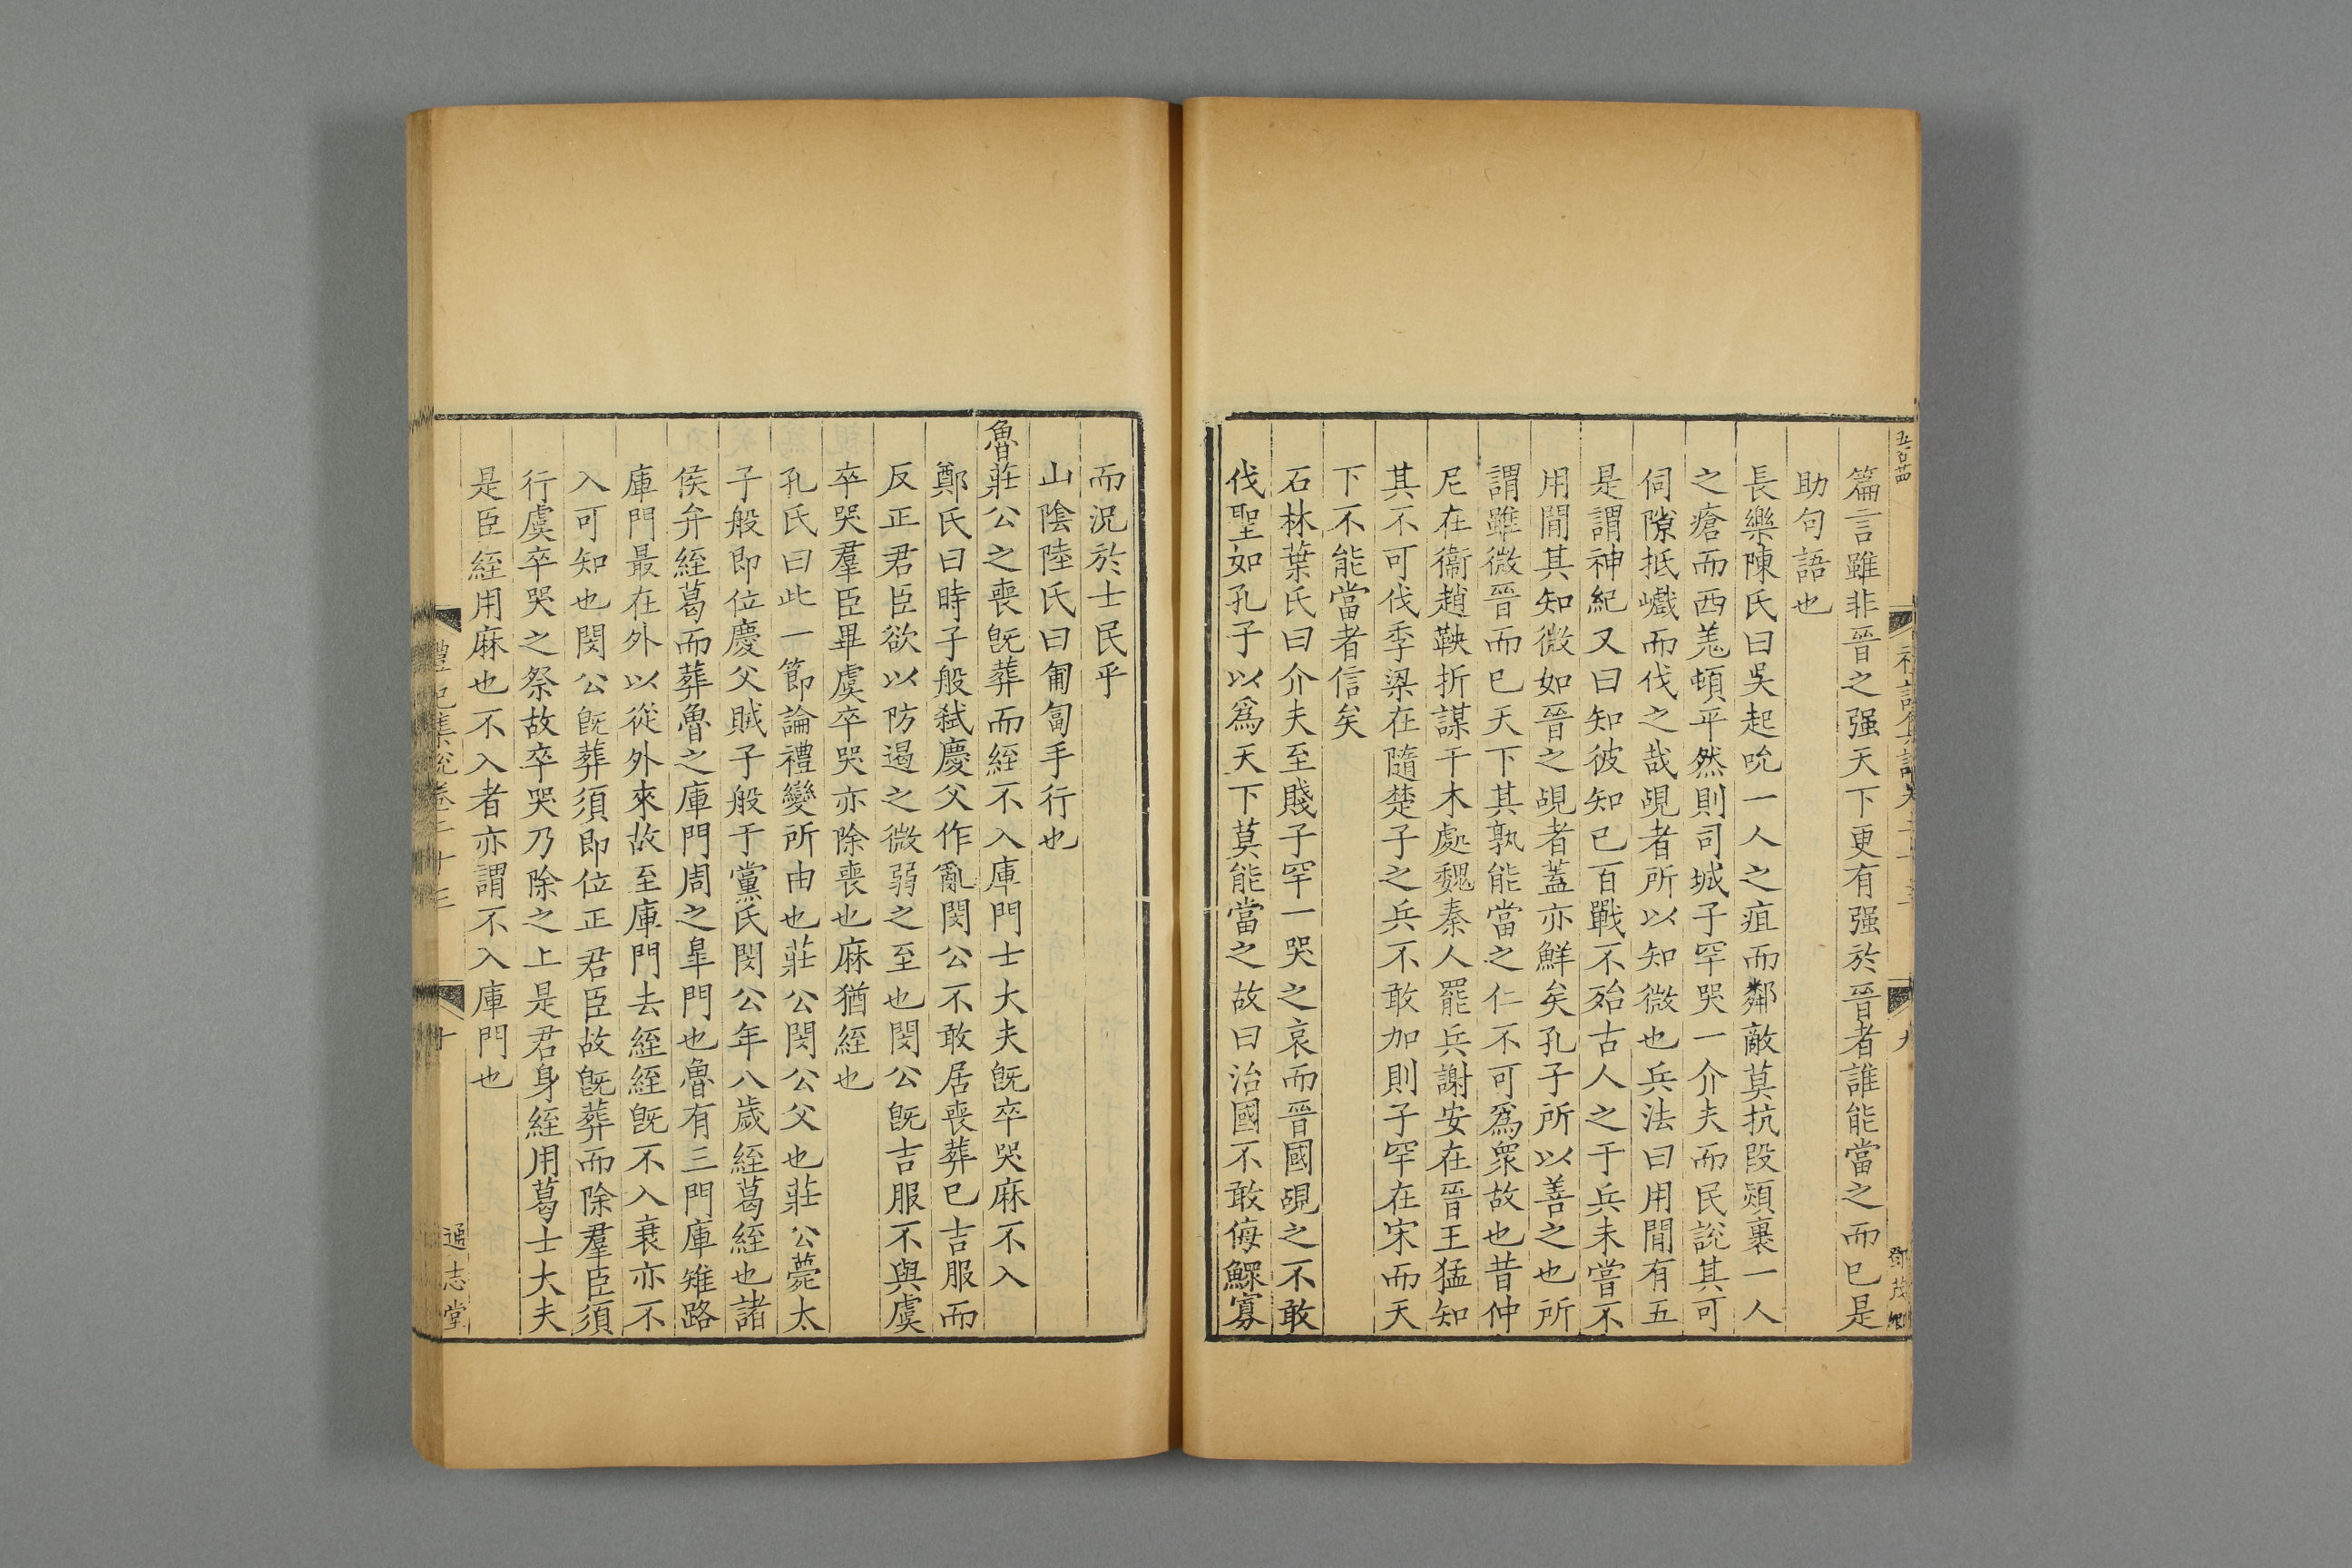 篇言雖非晉之强天下更有强於晉者誰能當之而已是
助句語也
長樂陳氏曰吳起吮一人之疽而鄰敵莫抗段熲裹一人
之瘡而西羌頓平然則司城子罕哭一介夫而民說其可
伺隙抵巇而伐之哉覘者所以知微也兵法曰用閒有五
是謂神紀又曰知彼知己百戰不殆古人之于兵未嘗不
用閒其知微如晉之覘者蓋亦鮮矣孔子所以善之也所
謂雖微晉而已天下其孰能當之仁不可爲衆故也昔仲
尼在衞趙鞅折謀干木處魏秦人罷兵謝安在晉王猛知
其不可伐季梁在隨楚子之兵不敢加則子罕在宋而天
下不能當者信矣
石林葉氏曰介夫至賤子罕一哭之哀而晉國覘之不敢
伐聖如孔子以爲天下莫能當之故曰治國不敢侮鰥寡
而況於士民乎
山陰陸氏曰匍匐手行也
魯莊公之喪旣葬而絰不入庫門士大夫旣卒哭麻不入
鄭氏曰時子般弑慶父作亂閔公不敢居喪葬已吉服而
反正君臣欲以防遏之微弱之至也閔公旣吉服不與虞
卒哭羣臣畢虞卒哭亦除喪也麻猶絰也
孔氏曰此一節論禮變所由也莊公閔公父也莊公薨太
子般即位慶父賊子般于黨氏閔公年八歲絰葛絰也諸
侯弁絰葛而葬魯之庫門周之臯門也魯有三門庫雉路
庫門最在外以從外來故至庫門去絰絰旣不入衰亦不
入可知也閔公旣葬須即位正君臣故旣葬而除羣臣須
行虞卒哭之祭故卒哭乃除之上是君身絰用葛士大夫
是臣絰用麻也不入者亦謂不入庫門也
禮記集說卷二十三
十
通志堂